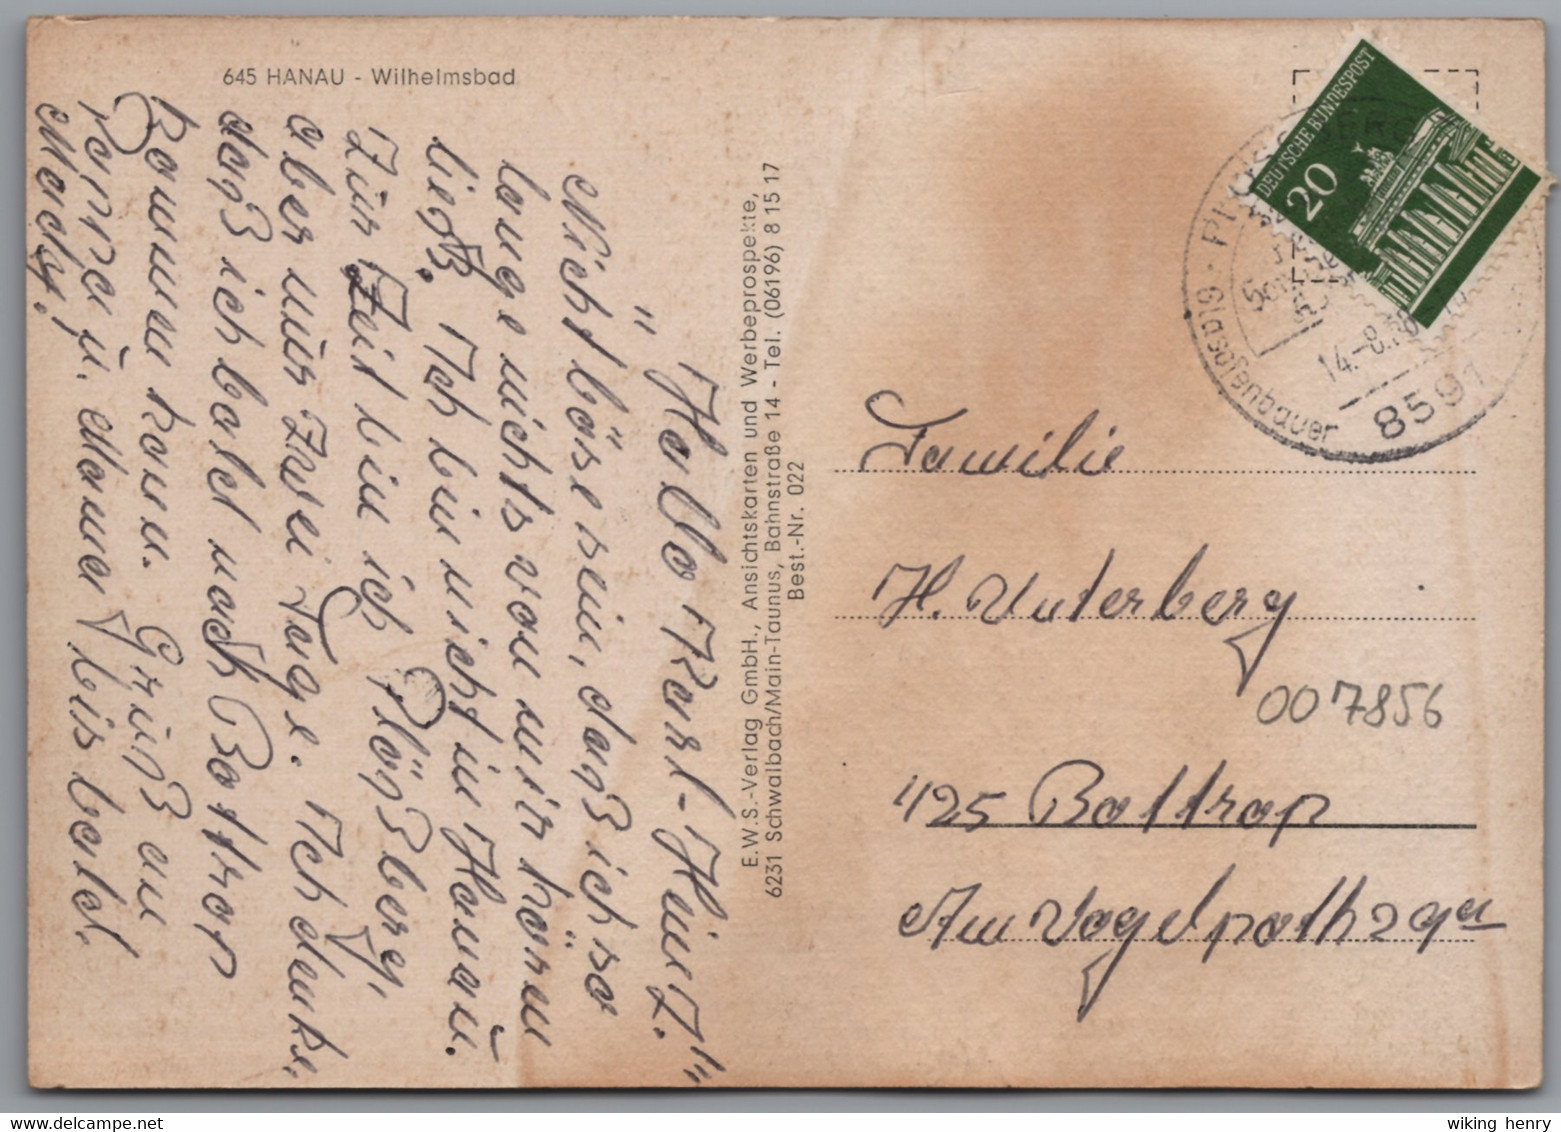 645 HANAU - Wilhelmsbad
"Hallo Karl-Heinz."
Nicht böse sein, daß ich so
lange nichts von mir hören
ließ. Ich bin nicht in Hanau.
Zur Zeit bin ich Plößberg,
aber nur zwei Tage. Ich denke,
daß ich bald nach Bottrop
kommen kann. Gruß an
Papa u. Mama bis bald.
Macky!
E.W.S.-Verlag GmbH., Ansichtskarten und Werbeprospekte,
6231 Schwalbach/Main-Taunus, Bahnstraße 14 - Tel. (06196) 8 15 17
Best.-Nr. 022
DEUTSCHE BUNDESPOST
20
14.-8.
8591
Glasofenbauer
Familie
H. Unterberg
007856
425 Bottrop
Am Vogelpoth 29a
wiking henry